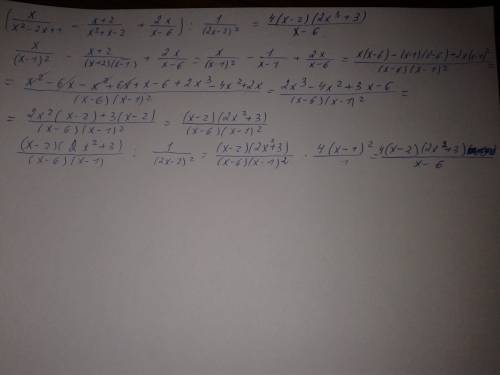 (x/(x²-2x+1) - (x+2)/(x²+x-2) + 2x/(x-6)) : 1/(2x-2)² = 4(x-2)(2x³+3)/(x-6)
x/(x-1)² - (x+2)/((x+2)(x-1)) + 2x/(x-6) = x/(x-1)² - 1/(x-1) + 2x/(x-6) = (x(x-6)-(x-1)(x-6)+2x(x-1)²)/((x-6)(x-1)²) =
= (x²-6x-x²+6x+x-6+2x³-4x²+2x)/((x-6)(x-1)²) = (2x³-4x²+3x-6)/((x-6)(x-1)²) =
= (2x²(x-2)+3(x-2))/((x-6)(x-1)²) = (x-2)(2x²+3)/((x-6)(x-1)²)
(x-2)(2x²+3)/((x-6)(x-1)) : 1/(2x-2)² = (x-2)(2x³+3)/((x-6)(x-1)²) · 4(x-1)²/1 = 4(x-2)(2x³+3)/(x-6)